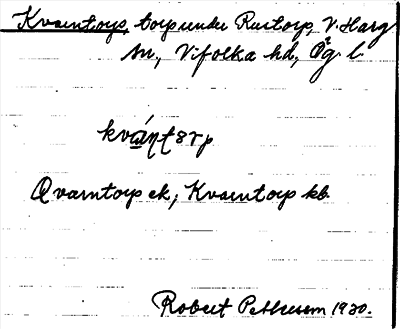 Kvarntorp, torp under Rustorp, V. Harg
sn, Vifolka hd, Ög. l.
Qvarntorp ek; Kvarntorp kb.
Robert Pettersson 1930.